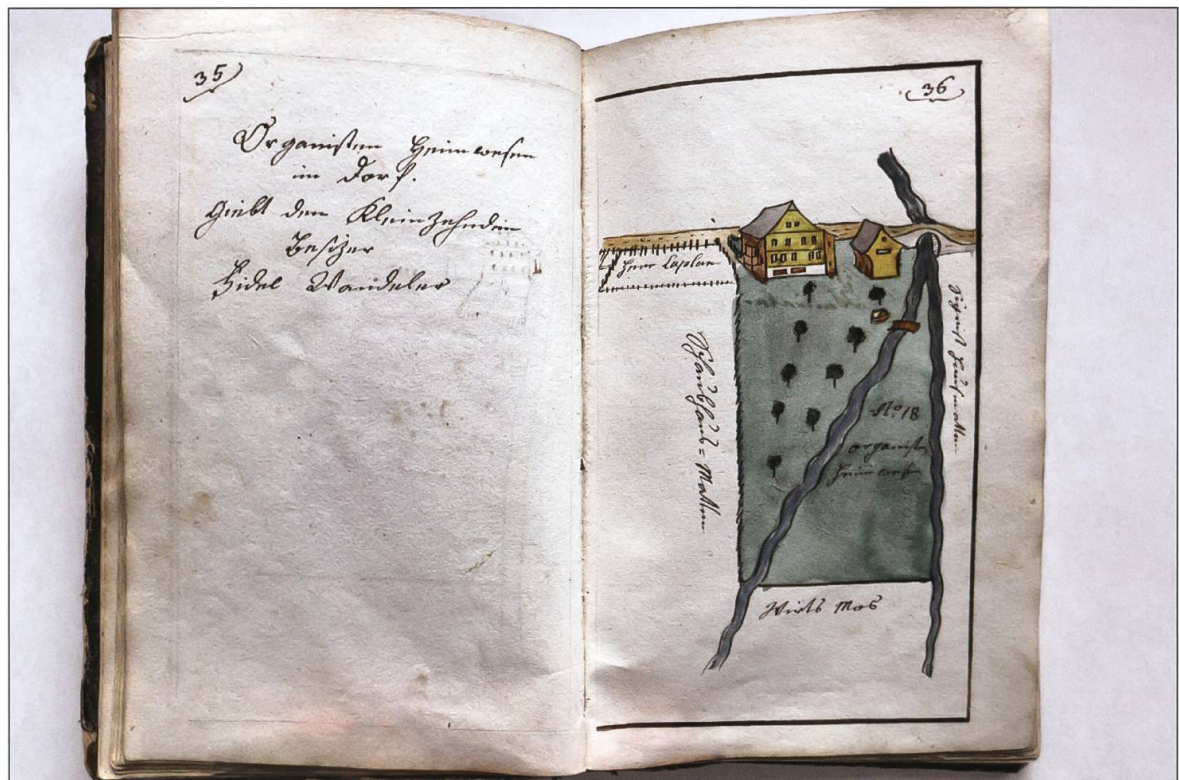 35
Organisten Heimwesen
im Dorf.
Giebt den Kleinzehnden
Besizer
Fidel Wandeler
36
Herr Caplan
Schaubhaus=Matten
No 18
Organisten
Heimwesen
Wirts Mos